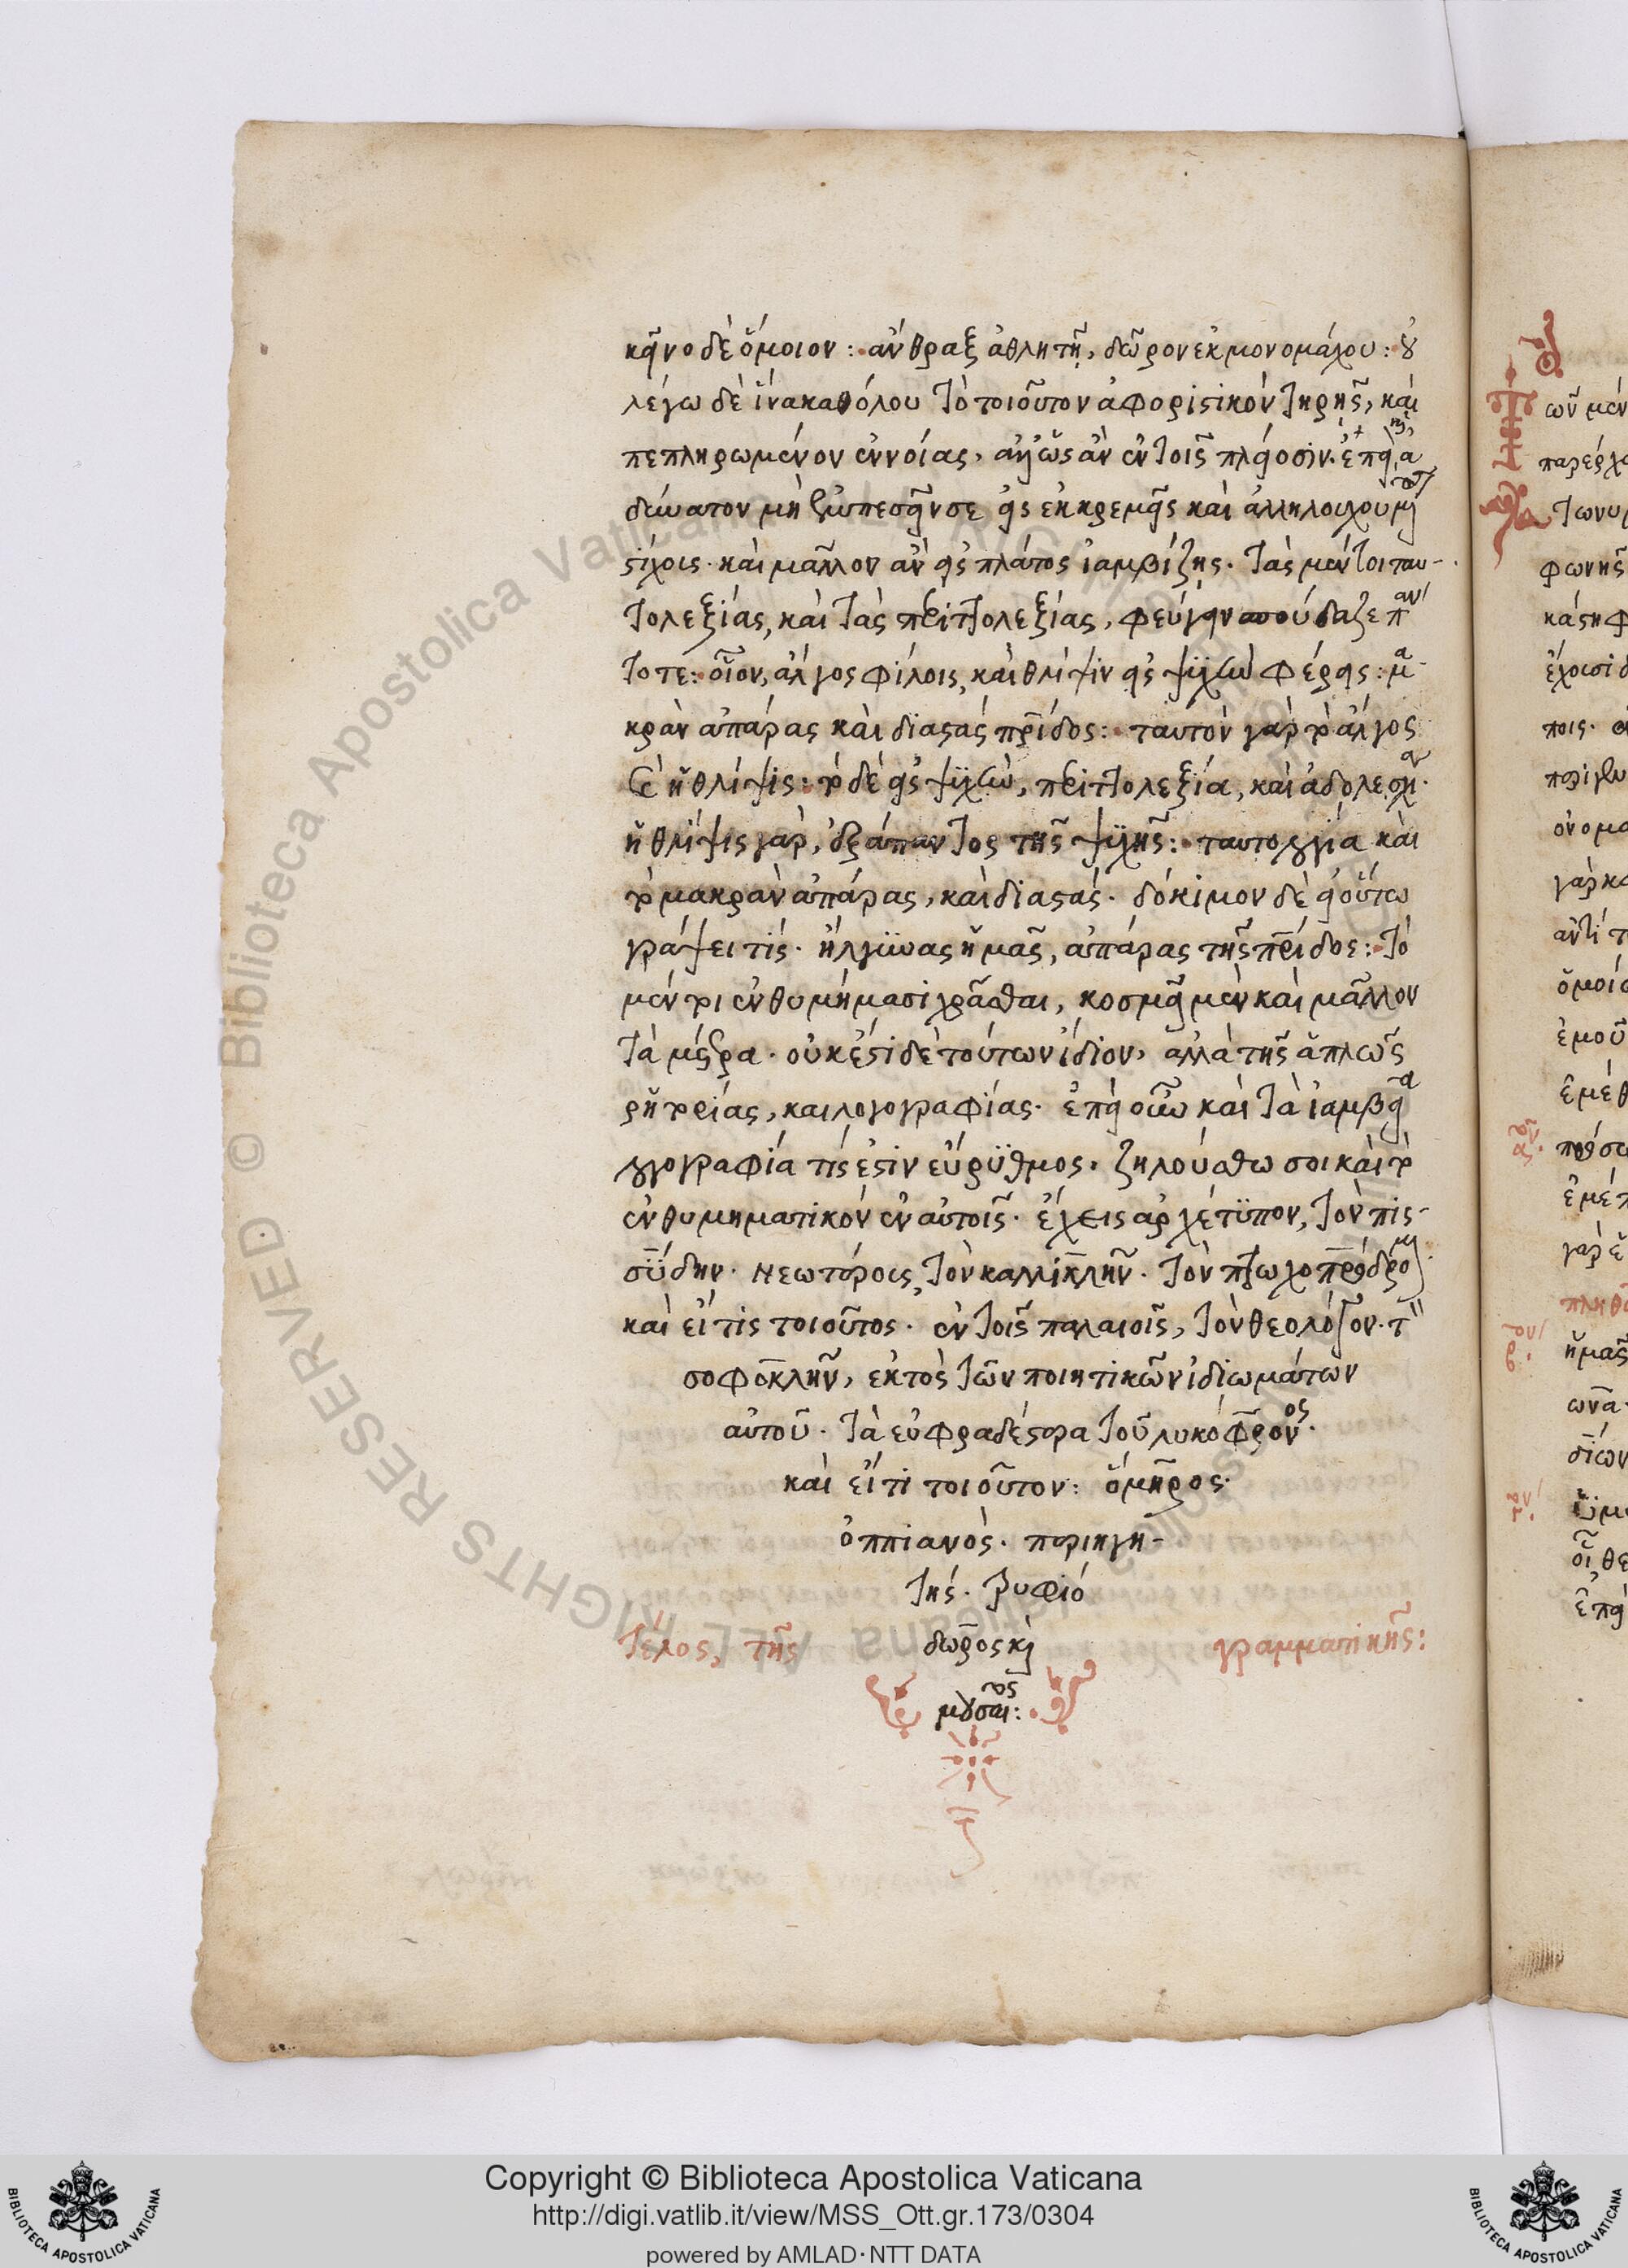 κεῖνο δὲ ὅμοιον: ἄνθραξ ἀθλητῇ, δῶρον ἐκ μονομάχου: οὐ
λέγω δὲ ἵνα καθόλου τὸ τοιοῦτον ἀφοριστικὸν τηρῇς, καὶ
πεπληρωμένον ἐννοίας, ἀλλ' ὡς ἂν ἐν τοῖς πλείοσιν. ἐπεὶ ἀ
δύνατον μὴ ἐμπεσεῖν σε εἰς ἐκκρεμεῖς καὶ ἀλληλουχουμένους
στίχους. καὶ μᾶλλον ἂν εἰς πλάτος ἰαμβίζῃς. τὰς μέντοι ταυ-
τολεξίας, καὶ τὰς περιττολεξίας, φεύγειν σπούδαζε πάν
τοτε: οἷον, ἄλγος φίλοις, καὶ θλίψιν εἰς ψυχὴν φέρεις: μα
κρὰν ἀπάρας καὶ διαστὰς πρίδος: ταυτὸν γὰρ τὸ ἄλγος
καὶ ἡ θλίψις: τὸ δὲ εἰς ψυχὴν, περιττολεξία, καὶ ἀδολεσχία.
ἡ θλίψις γὰρ, ἐξάπαντος τῆς ψυχῆς: ταυτολογία καὶ
τὸ μακρὰν ἀπάρας, καὶ διαστάς. δόκιμον δὲ εἰ οὕτω
γράψει τίς. ἤλγυνας ἡμᾶς, ἀπάρας τῆς πρίδος: τὸ
μέντοι ἐνθυμήμασι χρᾶσθαι, κοσμεῖ μὲν καὶ μᾶλλον
τὰ μέτρα. οὐκ ἔστι δὲ τούτων ἴδιον, ἀλλὰ τῆς ἁπλῶς
ῥητορείας, καὶ λογογραφίας. ἐπεὶ οὖν καὶ τὰ ἰαμβεῖα
λογογραφία τίς ἐστιν εὔρυθμος. ζηλούσθω σοι καὶ τὸ
ἐνθυμηματικὸν ἐν αὐτοῖς. ἔχεις ἀρχέτυπον, τὸν πισ-
σύδην. νεωτέροις, τὸν καλλικλῆν. τὸν πτωχοπρόδρομον
καὶ εἴ τις τοιοῦτος. ἐν τοῖς παλαιοῖς, τὸν θεολόγον. τὸν
σοφοκλῆν, ἐκτὸς τῶν ποιητικῶν ἰδιωμάτων
αὐτοῦ. τὰ εὐφραδέστερα τοῦ λυκόφρονος.
καὶ εἴ τι τοιοῦτον: ὅμηρος.
ὀππιανὸς. περιηγη-
τής. τρυφιό
δωρος καὶ
μουσαῖος:
τέλος, τῆς γραμματικῆς:
Copyright © Biblioteca Apostolica Vaticana
http://digi.vatlib.it/view/MSS_Ott.gr.173/0304
powered by AMLAD·NTT DATA